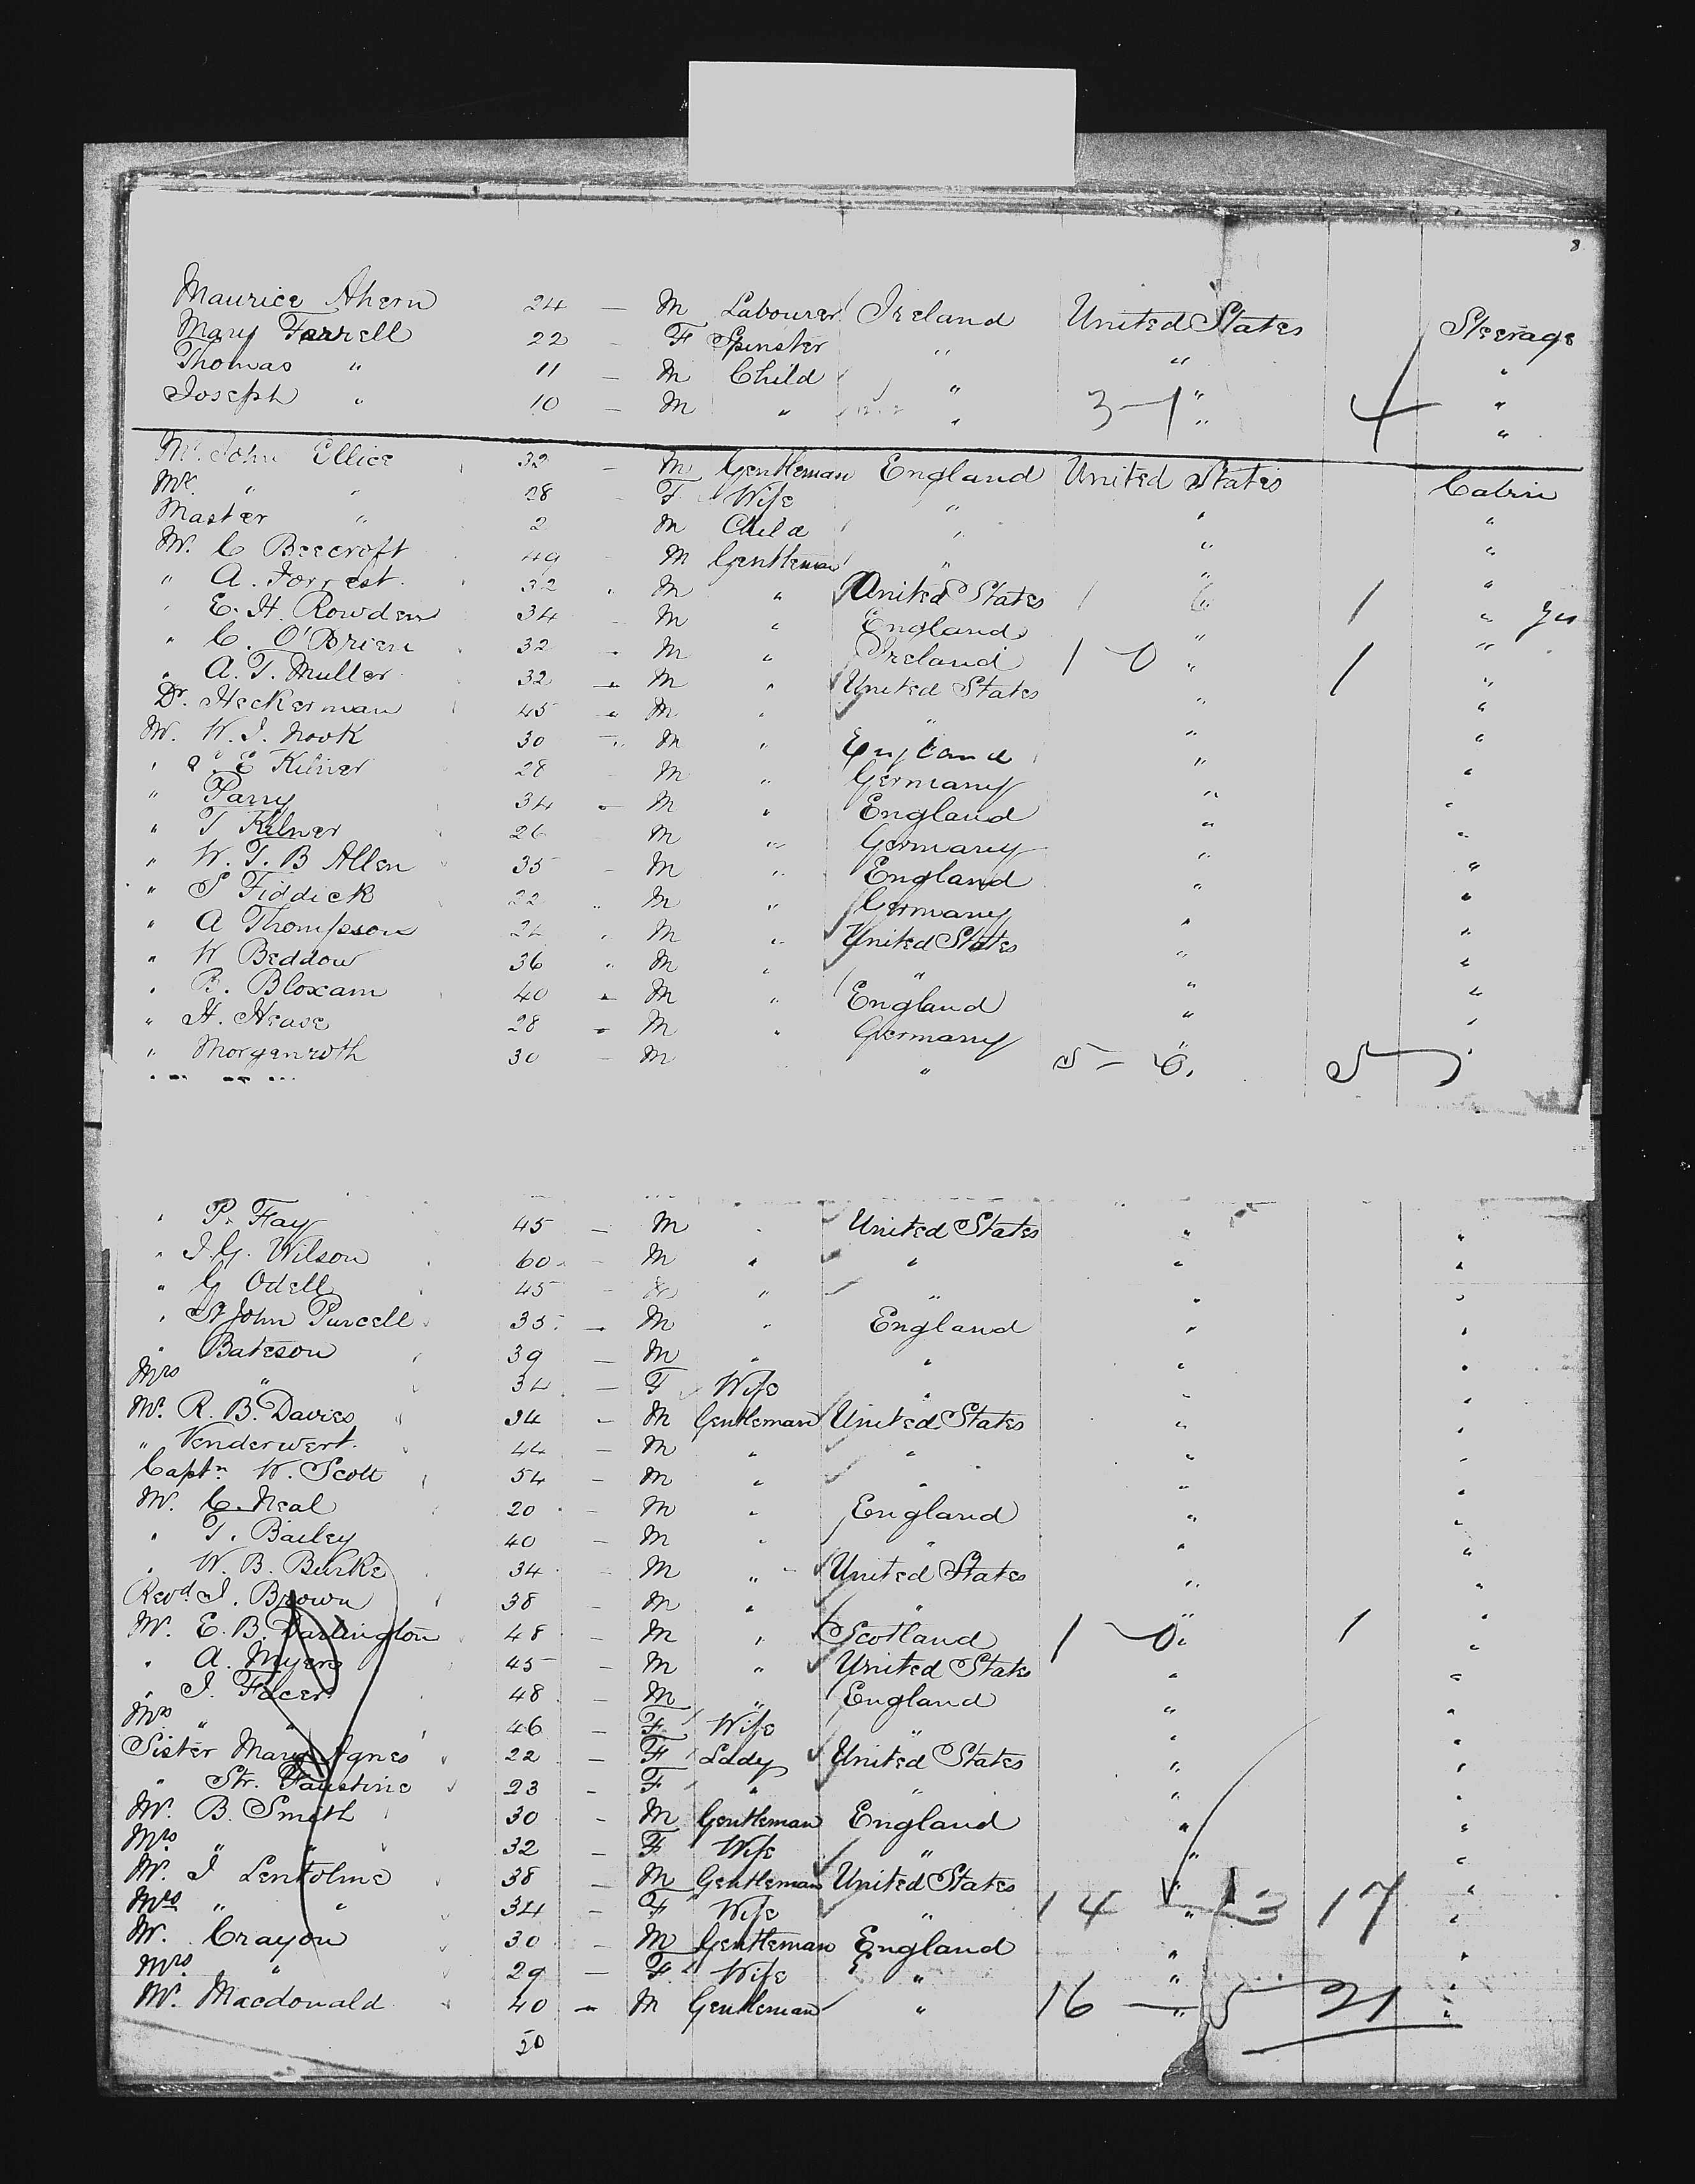 8
Maurice Ahern 24 — M Labourer Ireland United States Steerage
Mary Farrell 22 - F Spinster " " "
Thomas " 11 — M Child " " "
Joseph " 10 — M " " 3-1 " 4 "
Mr. John Ellice 32 — M Gentleman England United States Cabin
" " 28 F Wife " " "
Master " 2 M Child " " "
Mr. C Beecroft 49 M Gentleman " " "
" A. Forrest 32 M " United States 1 " 1 "
" E. H. Rowden 34 M " England " " yes
" C. O'Brien 32 - M " Ireland 1 - 0 " 1 "
" A. T. Muller 32 - M " United States " "
Dr. Heckerman 45 M " " " "
Mr. W. J. Nook 30 M " England " "
" E Kilner 28 M " Germany " "
" Parry 34 - M " England " "
" T Kilner 26 M " Germany " "
" W. T. B Allen 35 - M " England " "
" S Fiddick 22 M " Germany " "
" A Thompson M " United States " "
" W Beddow 36 M " " " "
" B. Bloxam 40 - M " England " "
" H. Hease 28 - M " Germany " "
" Morgenroth 30 — M " 5 - 0 " 5 "
" P. Fay 45 — M " United States " "
" J. G. Wilson 60 - M " " " "
" G Odell 45 - " " " "
" St John Purcell 35 - M " England " "
" Bateson 39 — M " " " "
Mrs " 34 — F Wife " " "
Mr. R. B. Davies 34 - M Gentleman United States " "
" Venderwert 44 — M " " " "
Captn. W. Scott 54 - M " " " "
Mr. C. Neal 20 - M " England " "
" T. Bailey 40 — M " " " "
" W. B. Burke 34 - M " United States " "
Revd. J. Brown 38 - M " " " "
Mr. E. B. Darlington 48 - M " Scotland 1 - 0 " 1 "
" A. Myers 45 — M " United States " "
" J. Facer 48 - M " England " "
Mrs " " 46 - F Wife " " "
Sister Mary Agnes 22 — F Lady United States " "
" Str. Faustine 23 - F " " " "
Mr. B. Smith 30 - M Gentleman England " "
Mrs " " 32 - F Wife " " "
Mr. J Lentolme 38 - M Gentleman United States " "
Mrs " " 34 - F Wife " 14 - 3 17 "
Mr. Crayon 30 - M Gentleman England " "
Mrs " 29 — F Wife " " "
Mr. Macdonald 40 - M Gentleman " 16 — 5 21 "
50